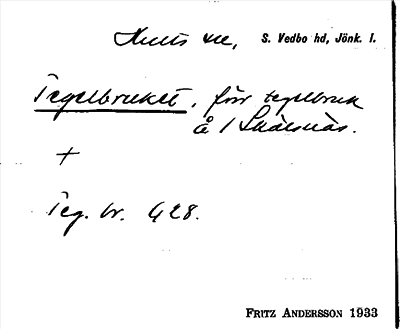 Hults sn, S. Vedbo hd, Jönk. l.
Tegelbruket, förr tegelbruk
å 1 Skälsnäs.
+
Teg. br. 428.
FRITZ ANDERSSON 1933